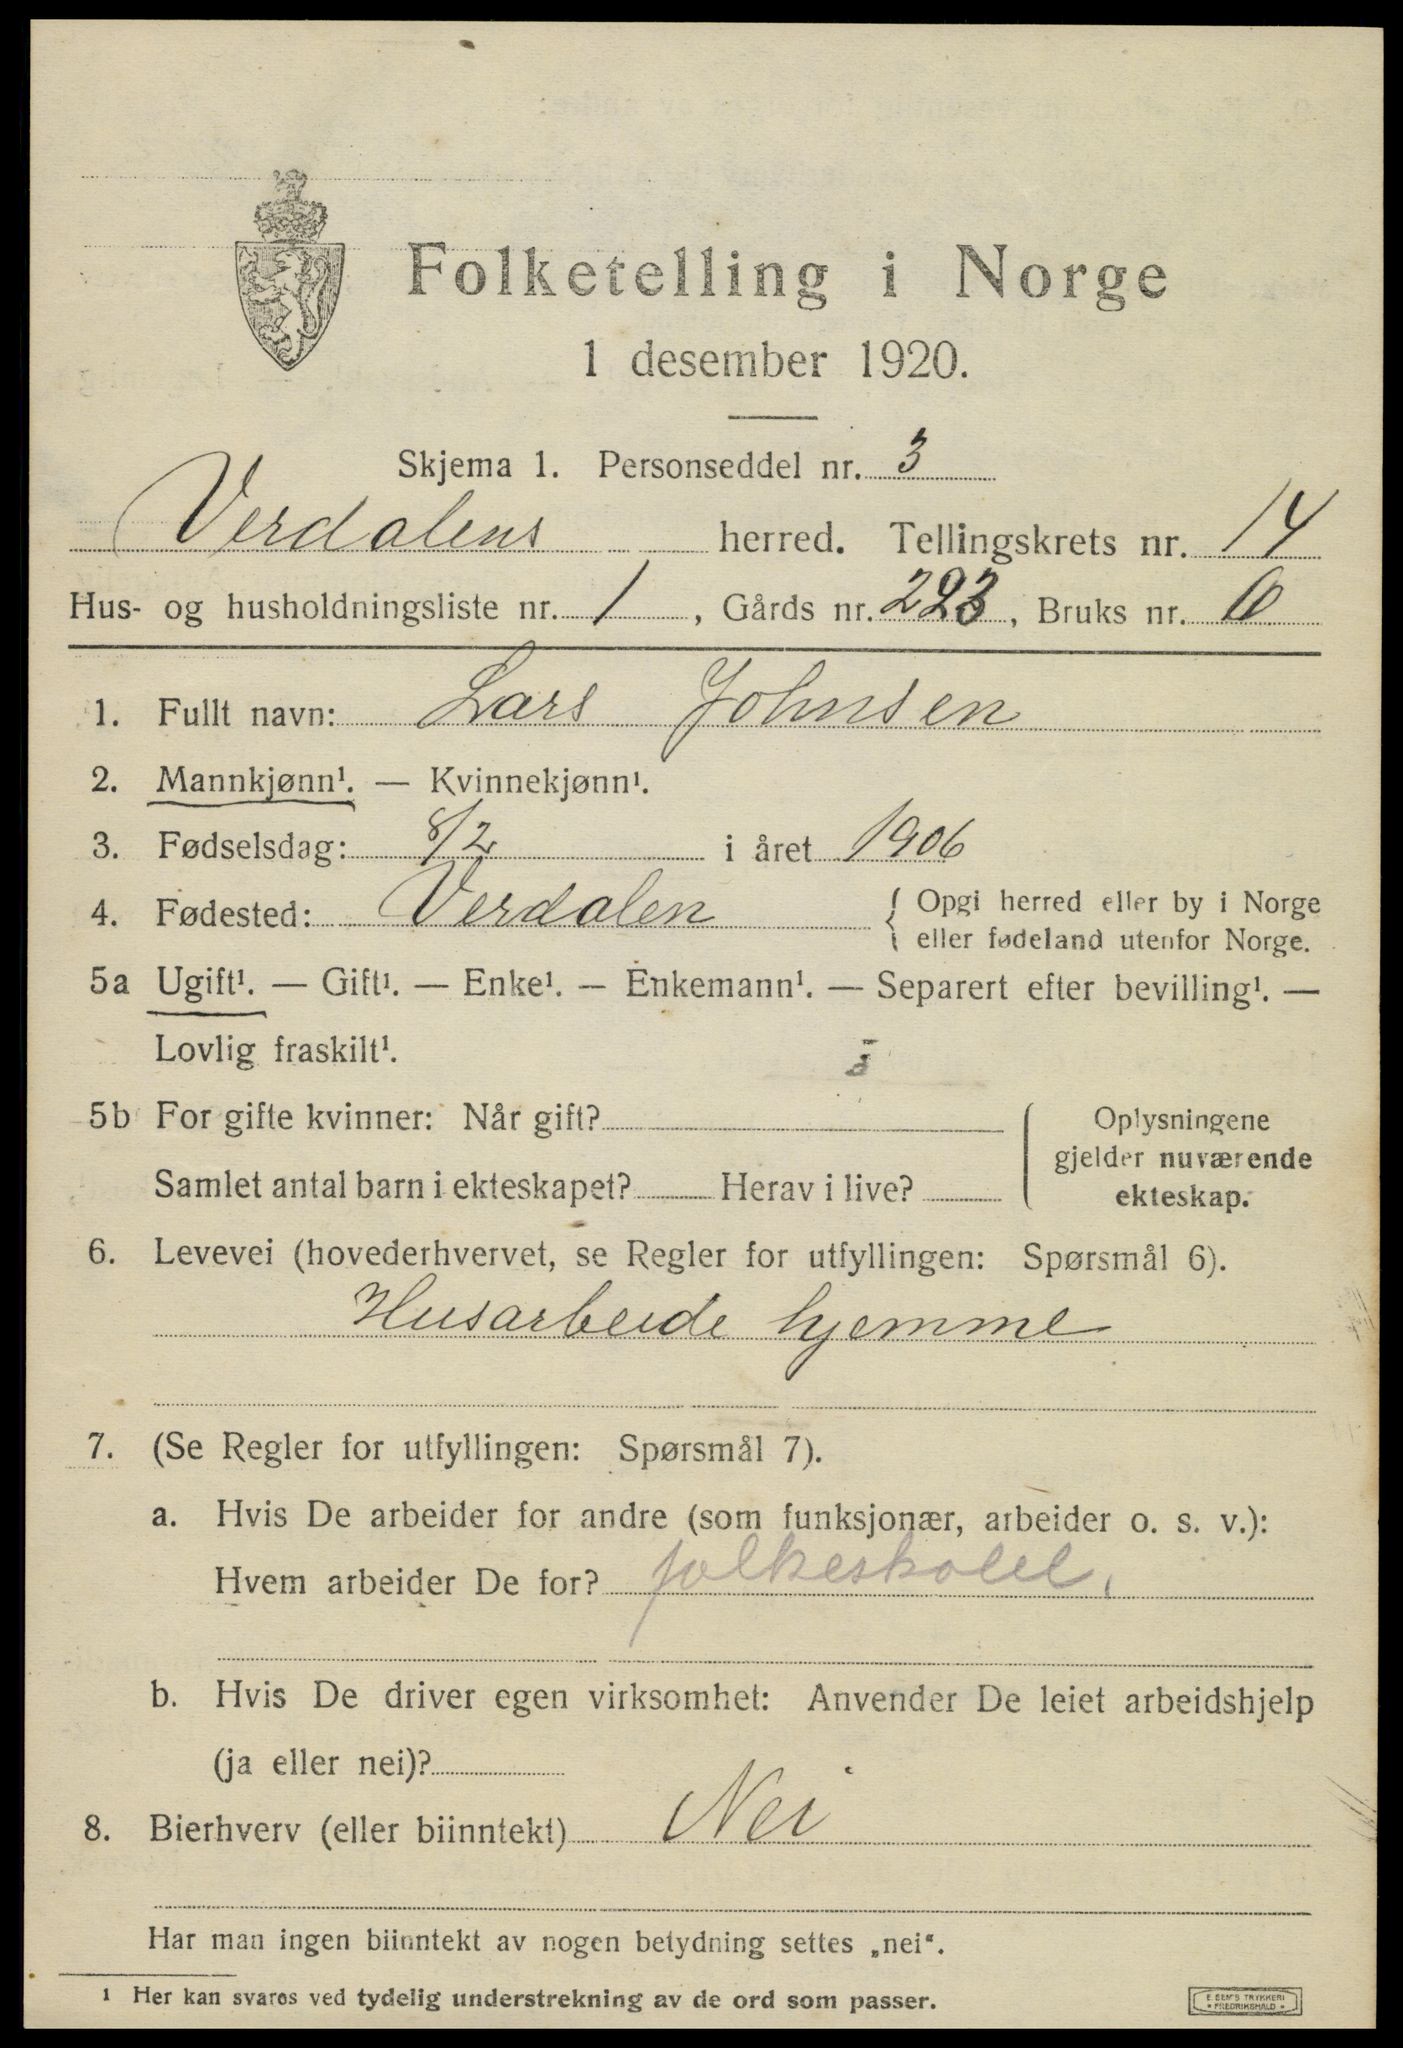 Folketelling i Norge
1 desember 1920.
Skjema 1. Personseddel nr. 3
Verdalens herred. Tellingskrets nr. 14
Hus- og husholdningsliste nr. 1, Gårds nr. 223, Bruks nr.
1. Fullt navn: Lars Johnsen
2. Mannkjønn¹. — Kvinnekjønn¹.
3. Fødselsdag: 8/2 i året 1906
4. Fødested: Verdalen { Opgi herred eller by i Norge
eller fødeland utenfor Norge.
5a Ugift¹. — Gift¹. — Enke¹. — Enkemann¹. — Separert efter bevilling¹. —
Lovlig fraskilt¹.
5b For gifte kvinner: Når gift?
Samlet antal barn i ekteskapet? Herav i live?
Oplysningene
gjelder nuværende
ekteskap.
6. Levevei (hovederhvervet, se Regler for utfyllingen: Spørsmål 6).
Husarbeide hjemme
7. (Se Regler for utfyllingen: Spørsmål 7).
a. Hvis De arbeider for andre (som funksjonær, arbeider o. s. v.):
Hvem arbeider De for? folkeskolel.
b. Hvis De driver egen virksomhet: Anvender De leiet arbeidshjelp
(ja eller nei)?
8. Bierhverv (eller biinntekt) Nei
Har man ingen biinntekt av nogen betydning settes „nei“.
1 Her kan svares ved tydelig understrekning av de ord som passer.
E. SEM'S TRYKKERI
• FREDRIKSHALD •